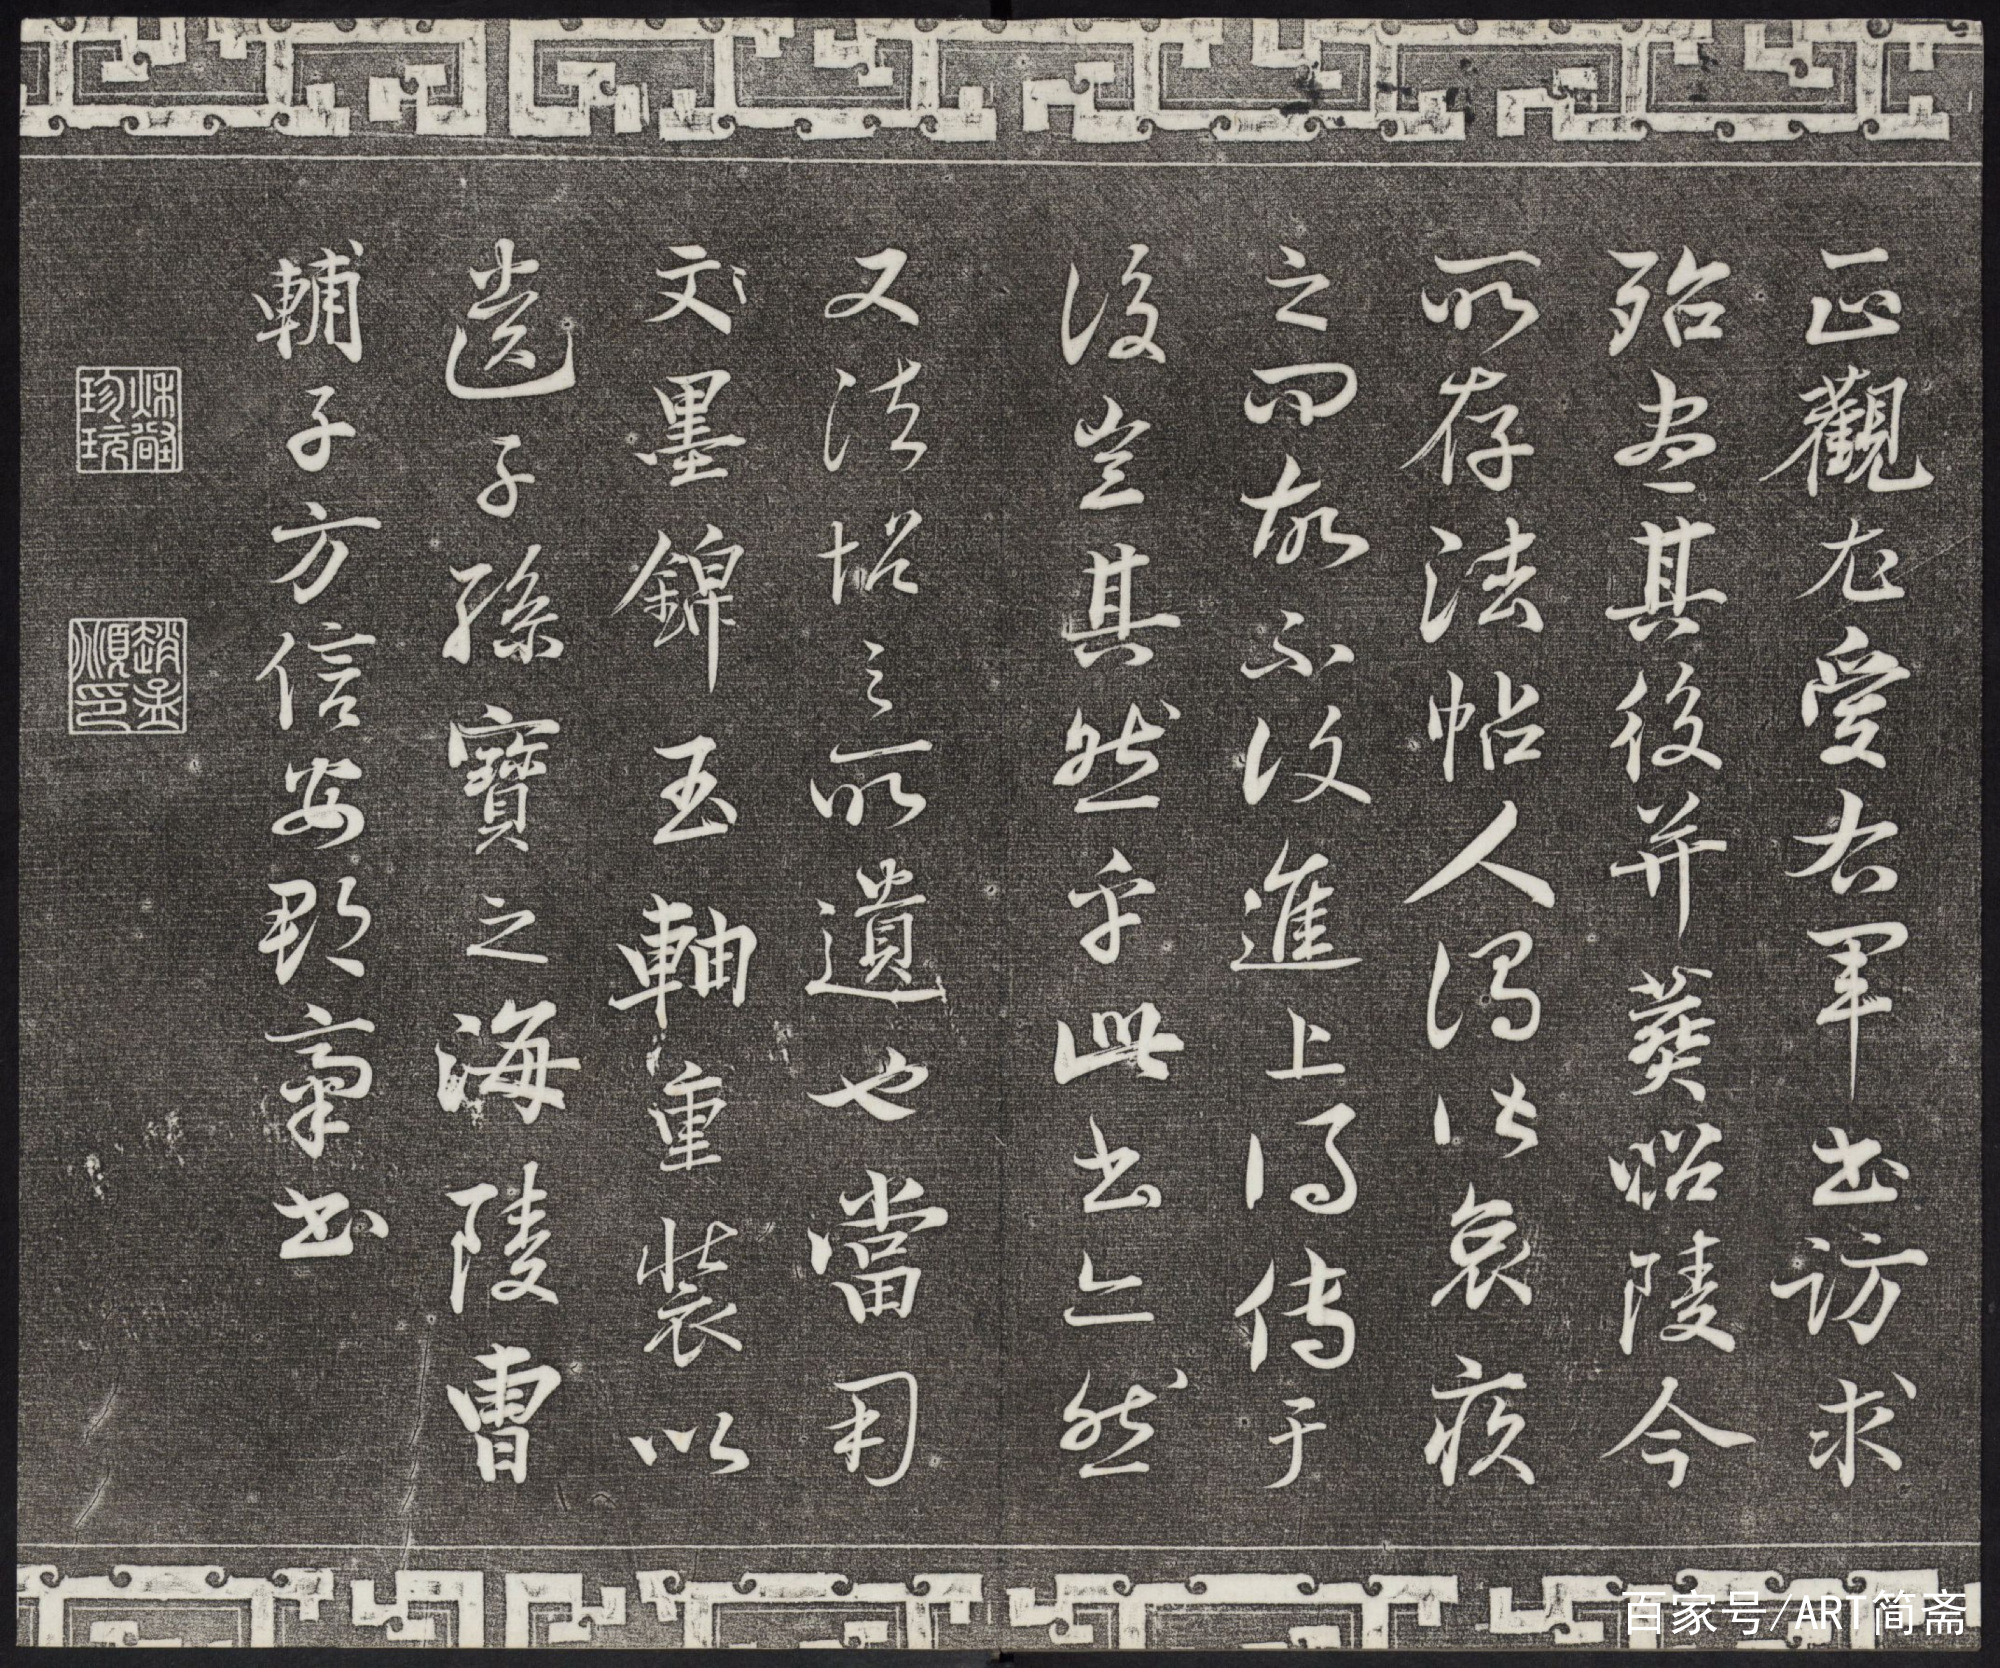 正觀尤愛右軍書訪求
殆盡其後并葬昭陵今
所存法帖人謂皆哀疾
之問故不進上得傳于
後豈其然乎此書亦然
又法帖之所遺也當用
文墨錦玉軸重裝以
遺子孫寶之海陵曹
輔子方信安郡齋書
珍玩
趙孟印
百家号/ART简斋